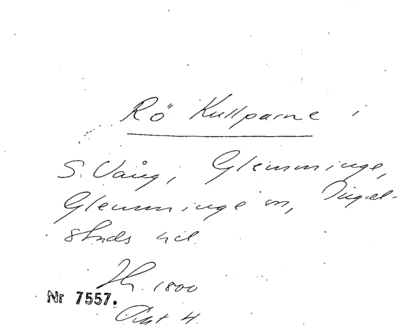 Rö Kullparne i
S. Vång, Glemminge,
Glemminge sn, Ingel-
stads hd.
1800
Nr 7557.
Ant 4.